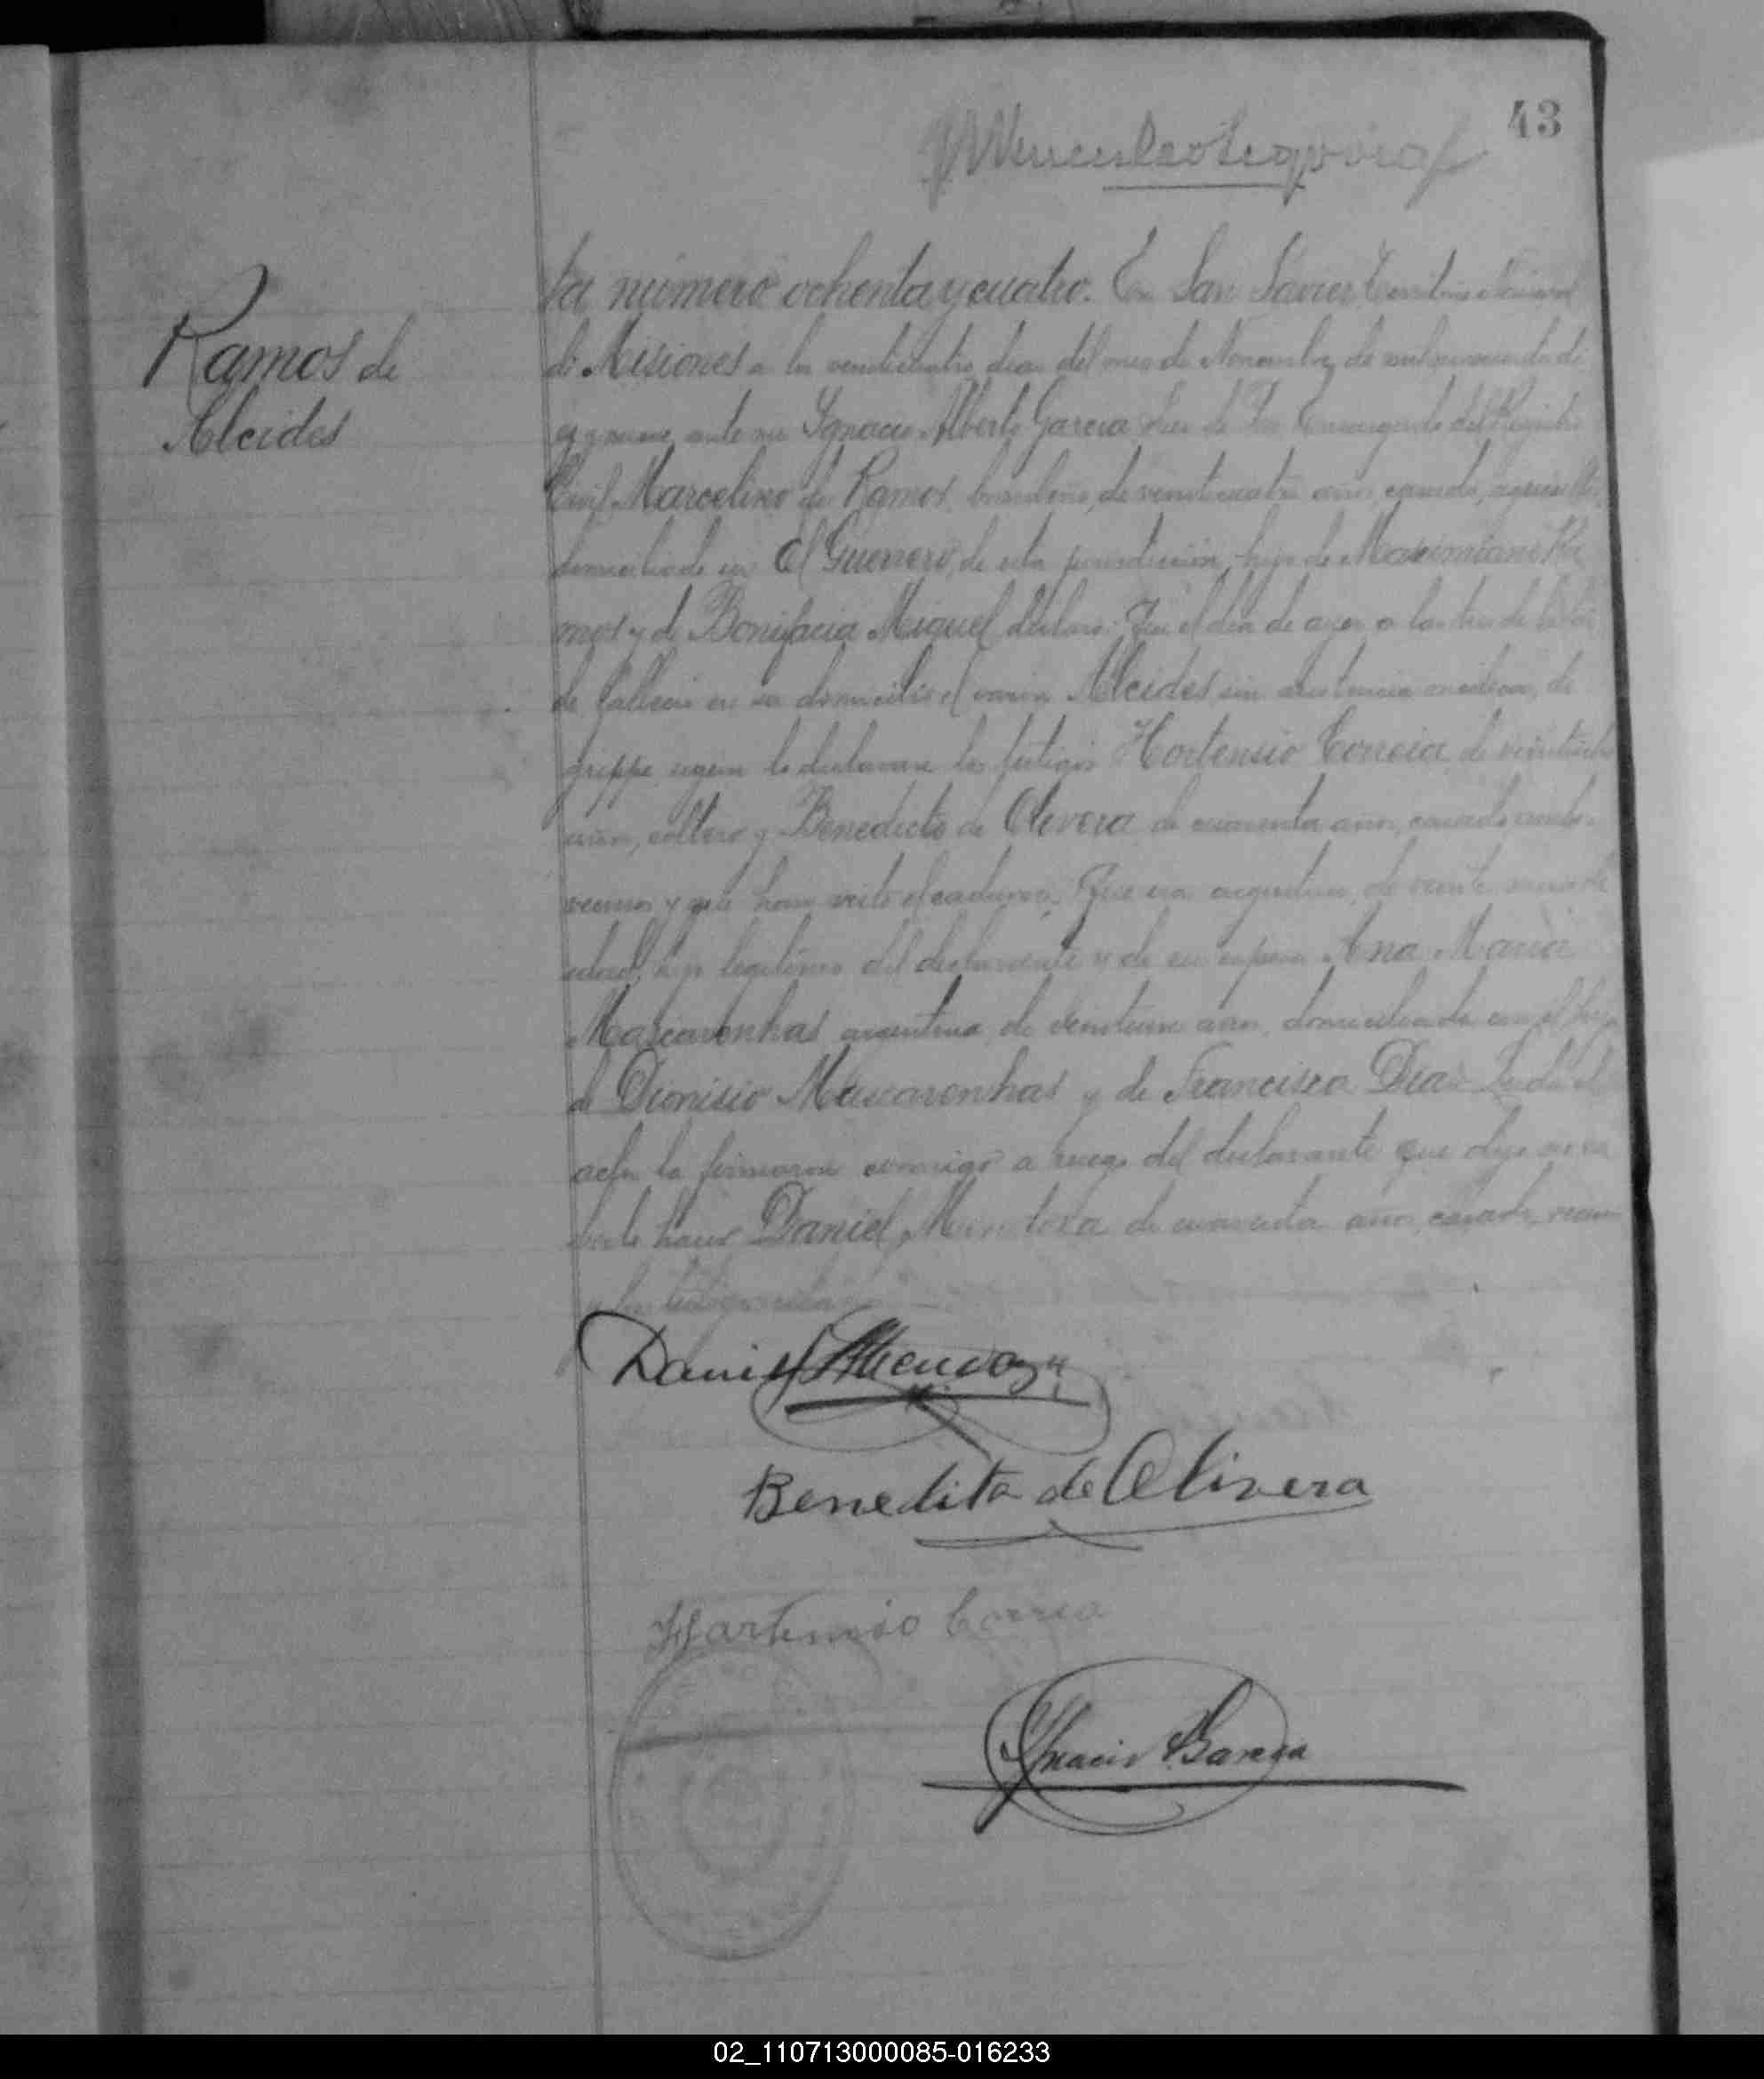 43
Ramos de
Alcides
ta número ochenta y cuatro. En San Javier Territorio Nacional
de Misiones a los veinticuatro dias del mes de Noviembre de mil novecientos di
ez y nueve, ante mi Ygnacio Alberto Garcia Juez de Paz Encargado del Registro
Civil Marcelino de Ramos, brasileño, de veinticuatro años, casado, agricultor,
domiciliado en El Guerrero, de esta jurisdicción, hijo de Maximiano Ra
mos y de Bonifacia Miguel, declaro: Que el dia de ayer a las tres de la tar
de falleció en su domicilio el varón Alcides sin asistencia medica, de
grippe segun lo declararon los testigos Hortensio Correia, de
años, soltero y Benedicto de Olivera de cuarenta años, casado, ambos
vecinos y que han visto el cadaver. Que era argentino, de veinte
edad, hijo legitimo del declarante y de su esposa Ana Maria
Mascarenhas argentina, de veintiun años, domiciliada con el, hija
de Dionisio Mascarenhas y de Francisca Dias. Leida el
acta la firmaron conmigo a ruego del declarante que dijo no sa
berlo hacer Daniel Mendoza de cuarenta años, casado, vecino
y los testigos
Daniel Mendoza
Benedito de Olivera
Hartensio Correa
Ygnacio A. Garcia
02_110713000085-016233